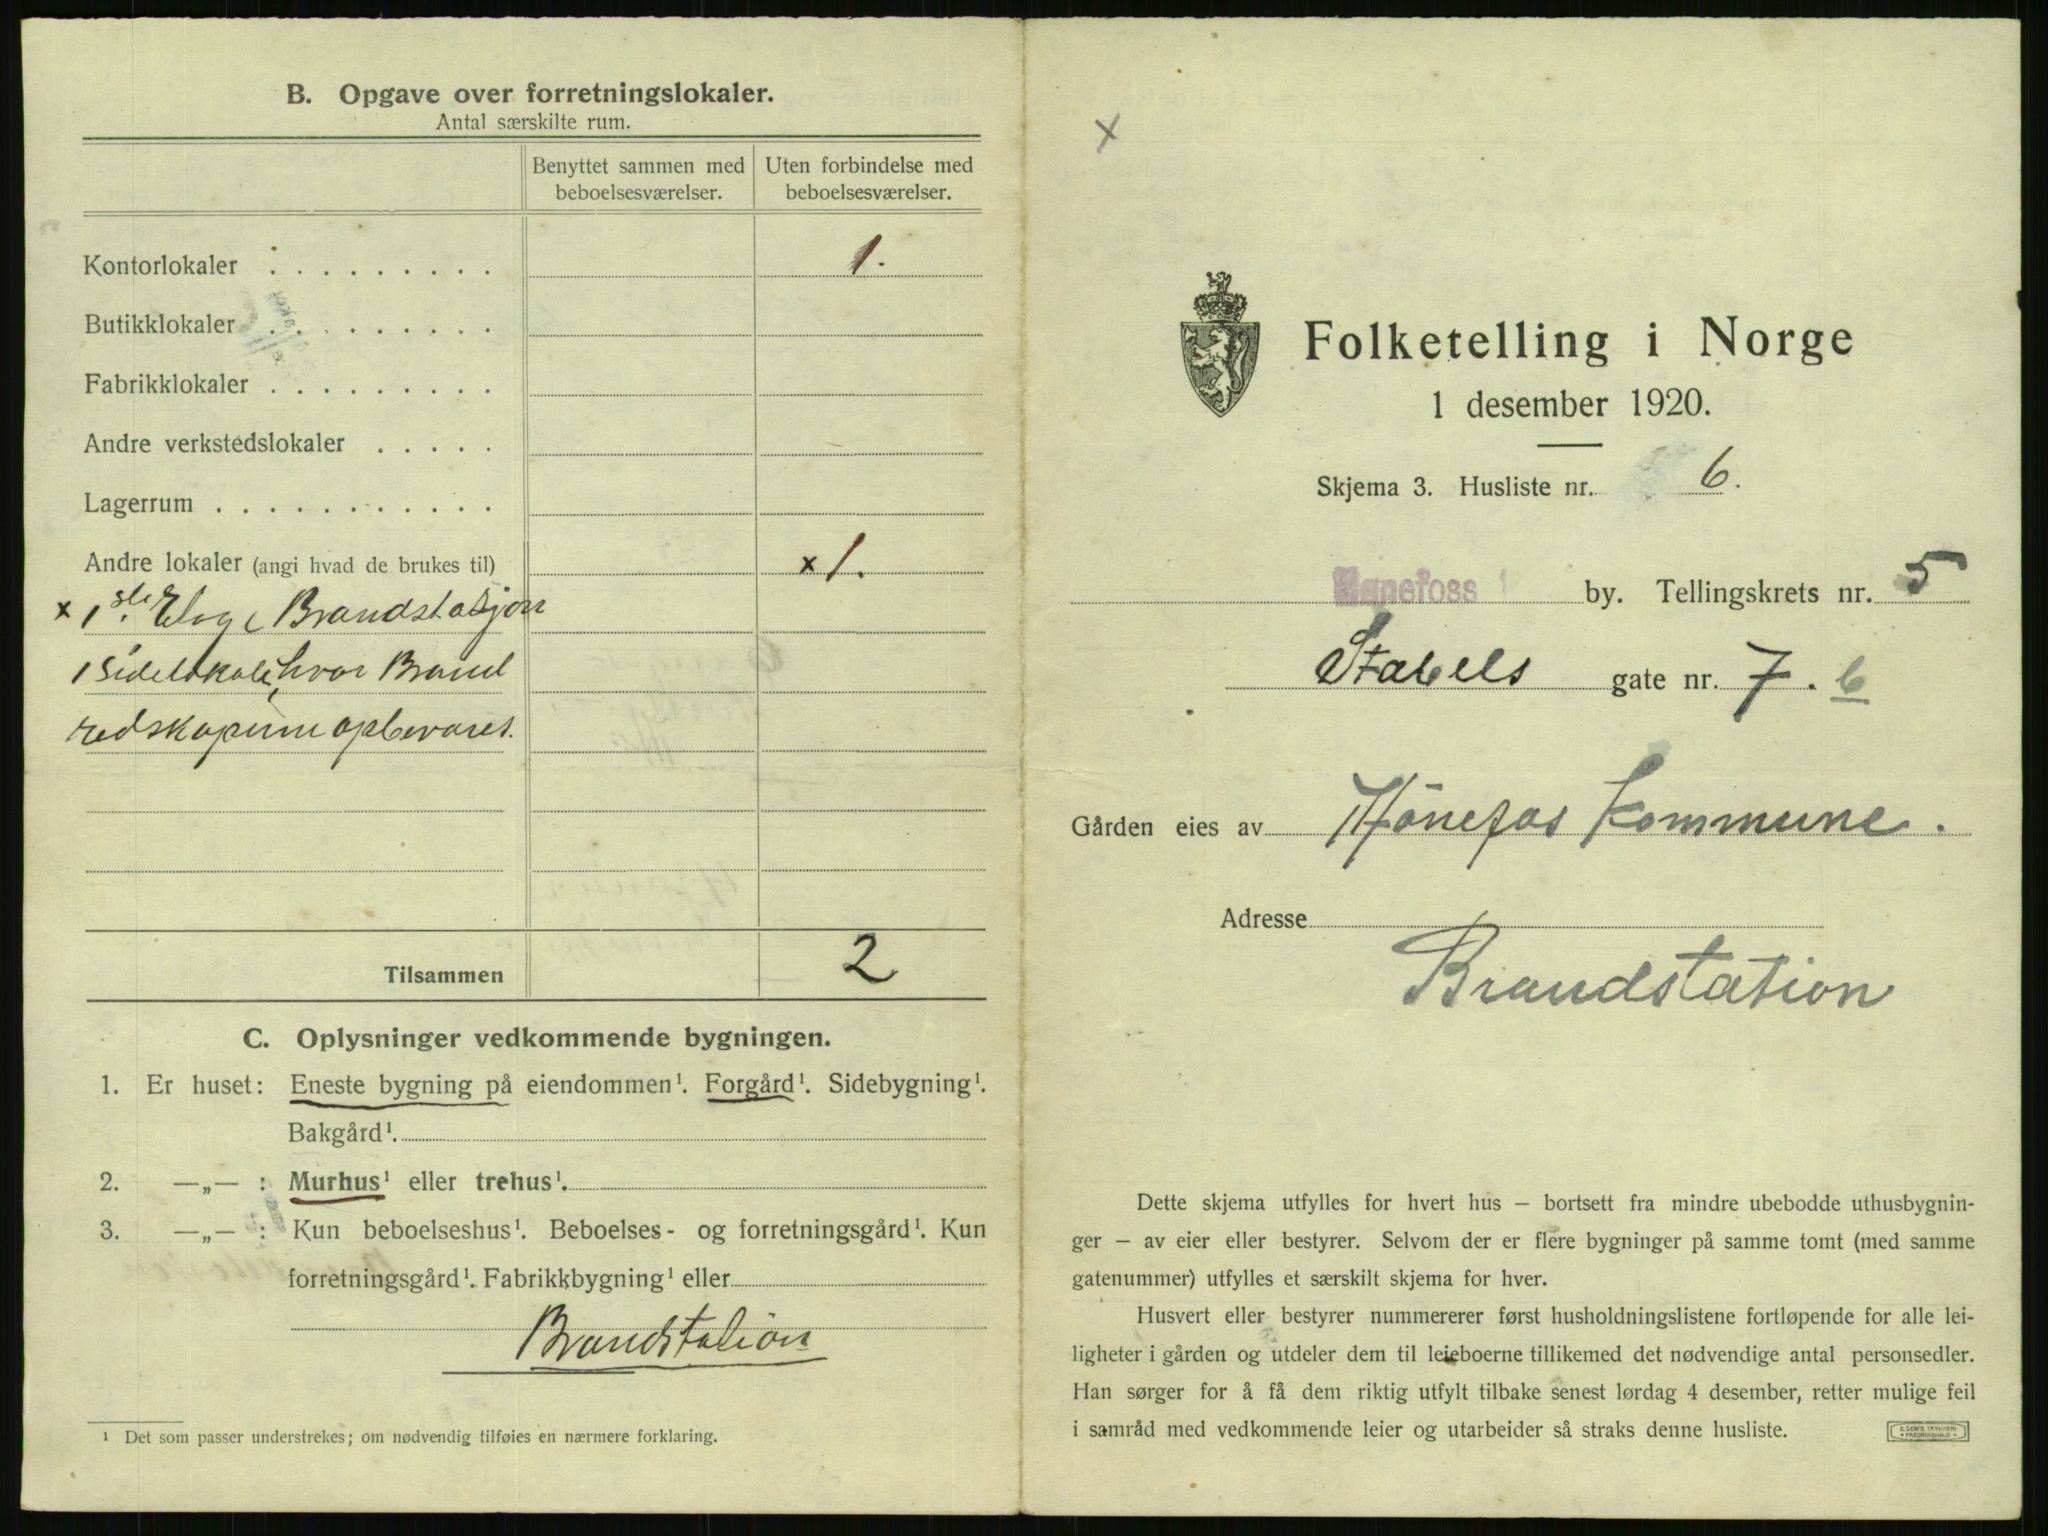 B. Opgave over forretningslokaler.
Antal særskilte rum.
Benyttet sammen med beboelsesværelser.
Uten forbindelse med beboelsesværelser.
Kontorlokaler . . . . . . . . . 1.
Butikklokaler . . . . . . . . .
Fabrikklokaler . . . . . . . . .
Andre verkstedslokaler . . . . .
Lagerrum . . . . . . . . . . . .
Andre lokaler (angi hvad de brukes til) x 1.
x 1ste Etage Brandstasjon
1 Sidelokale, hvor Brand
redskaperne opbevares.
Tilsammen 2
C. Oplysninger vedkommende bygningen.
1. Er huset: Eneste bygning på eiendommen¹. Forgård¹. Sidebygning¹.
Bakgård¹.
2. —„— : Murhus¹ eller trehus¹.
3. —„— : Kun beboelseshus¹. Beboelses- og forretningsgård¹. Kun
forretningsgård¹. Fabrikkbygning¹ eller
Brandstation
¹ Det som passer understrekes; om nødvendig tilføies en nærmere forklaring.
x
Folketelling i Norge
1 desember 1920.
Skjema 3. Husliste nr. 6.
Hønefoss by. Tellingskrets nr. 5
Stabells gate nr. 7. b
Gården eies av Hönefos Kommune.
Adresse
Brandstation
Dette skjema utfylles for hvert hus – bortsett fra mindre ubebodde uthusbygnin-
ger – av eier eller bestyrer. Selvom der er flere bygninger på samme tomt (med samme
gatenummer) utfylles et særskilt skjema for hver.
Husvert eller bestyrer nummererer først husholdningslistene fortløpende for alle lei-
ligheter i gården og utdeler dem til leieboerne tillikemed det nødvendige antal personsedler.
Han sørger for å få dem riktig utfylt tilbake senest lørdag 4 desember, retter mulige feil
i samråd med vedkommende leier og utarbeider så straks denne husliste.